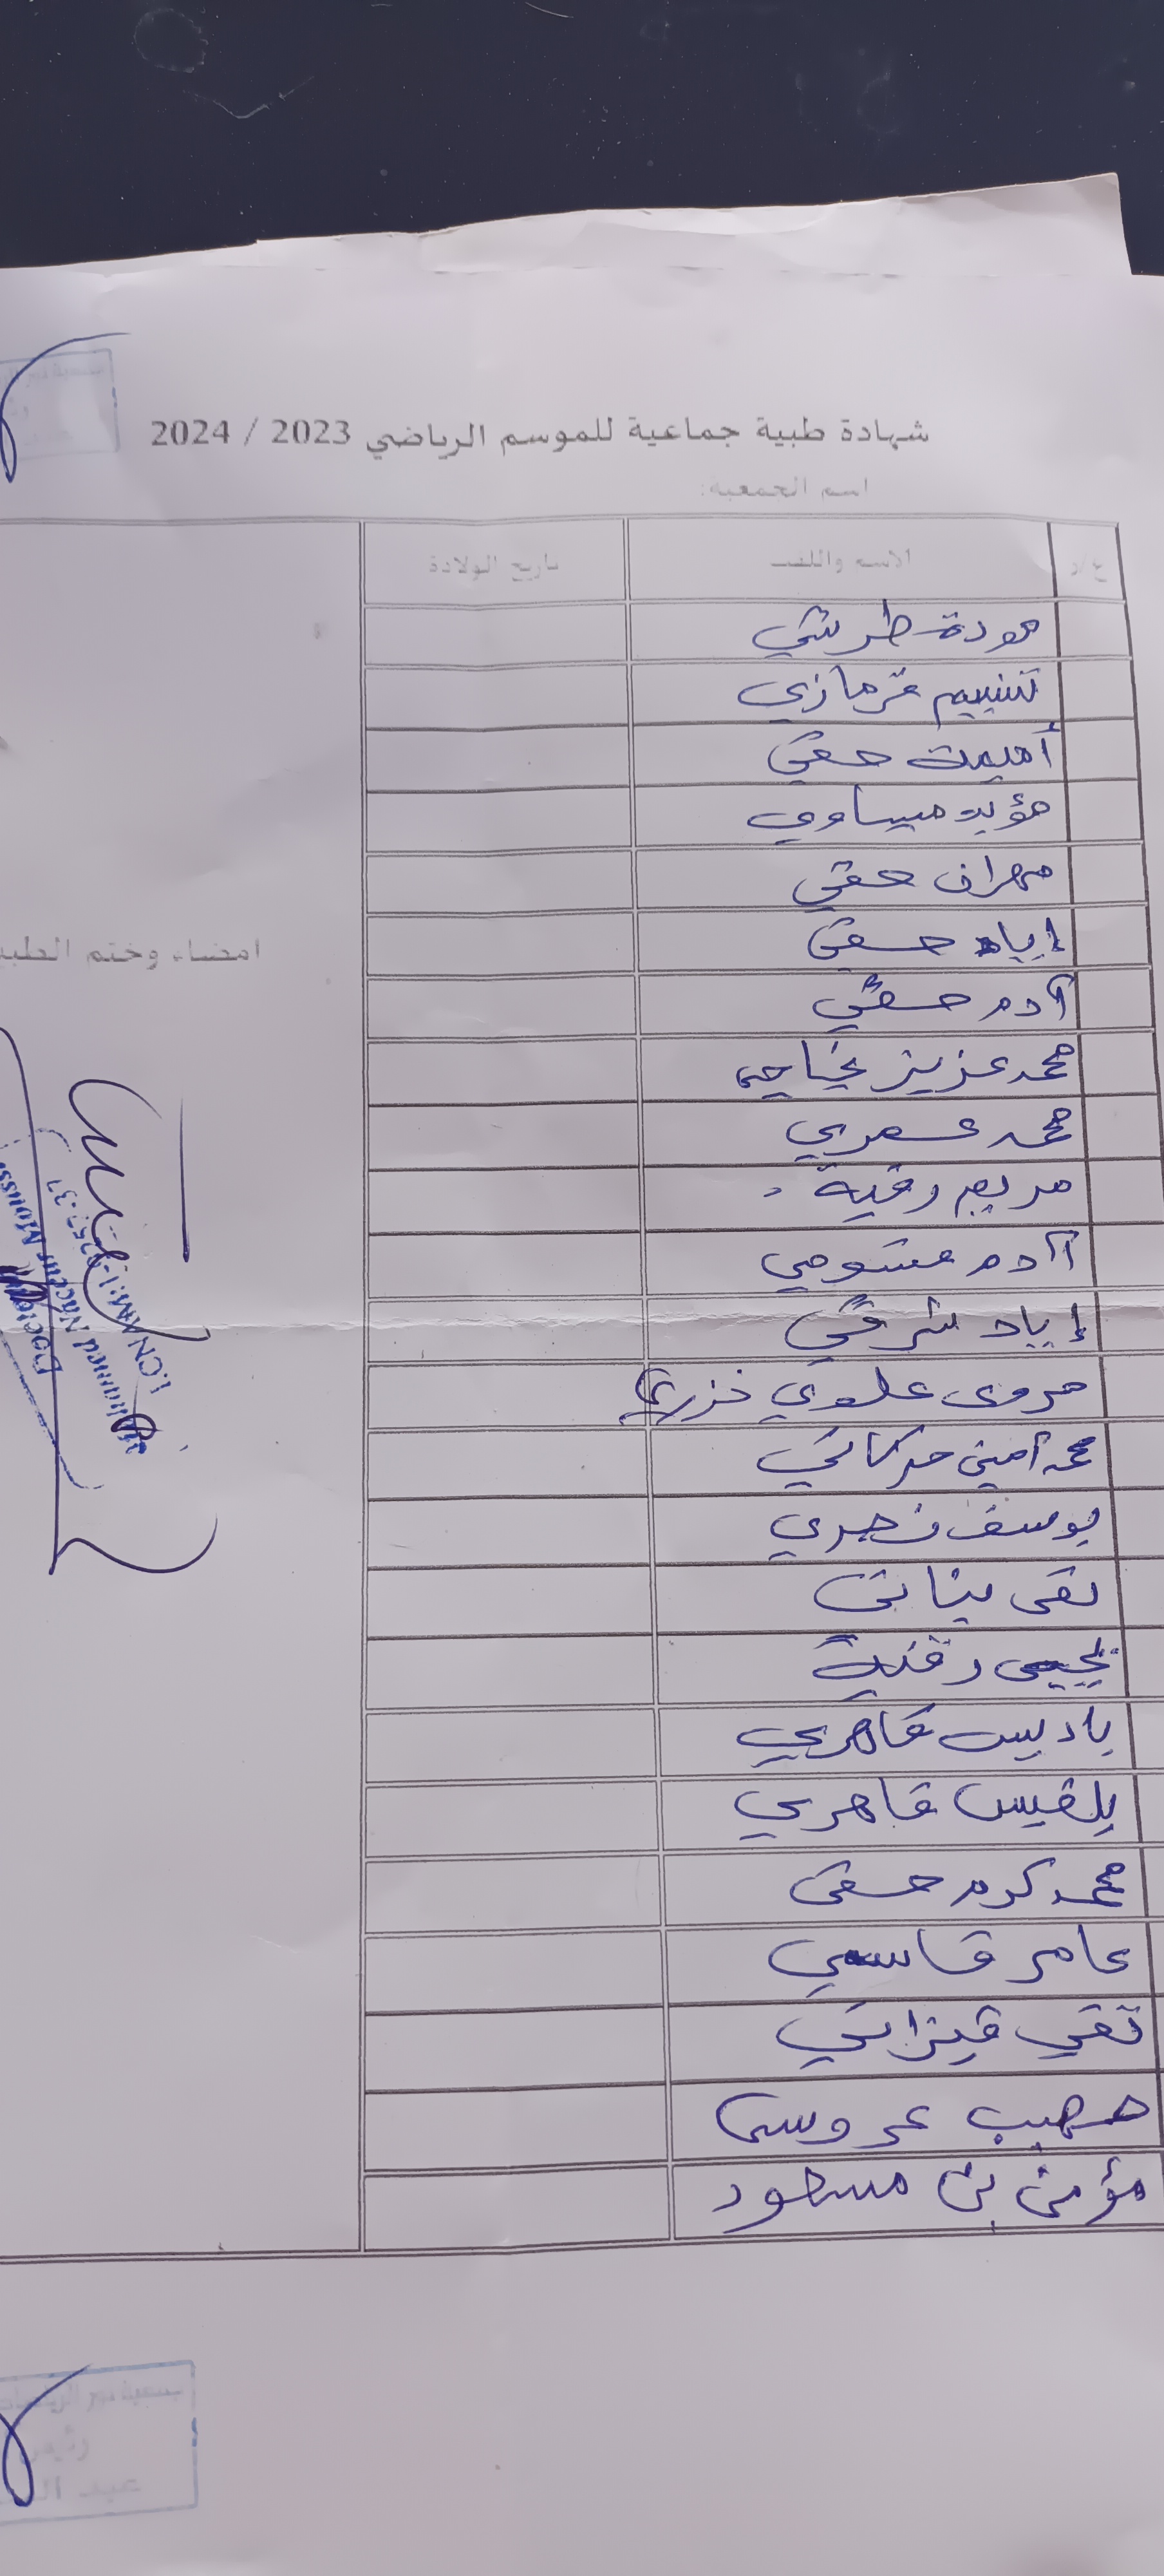 شهادة طبية جماعية للموسم الرياضي 2023 / 2024
اسم الجمعية:
ع/د الاسم واللقب تاريخ الولادة
مودة طرشي
تسنيم قرمازي
أميمة حقي
مؤيد ميساوي
مهران حقي
إياد حقي
آدم حقي
محمد عزيز
محمد عمري
مريم رقية
آدم مشومي
إياد شرقي
مروى علوي خزري
محمد أمين حركاتي
يوسف نصري
تقى بناني
يحيى رقية
باديس قاهري
بلقيس قاهري
محمد كرم حقي
عامر قاسمي
تقي قيزاني
صهيب عروسي
مؤمن بن مسعود
امضاء وختم الطبيب
Docteur
Mohamed Naceur Mouss